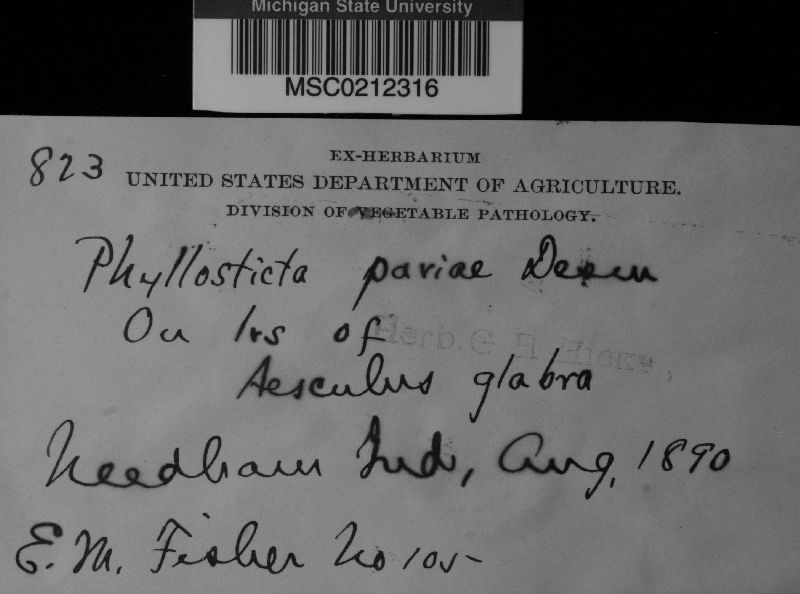 Michigan State University
MSC0212316
823
EX-HERBARIUM
UNITED STATES DEPARTMENT OF AGRICULTURE.
DIVISION OF VEGETABLE PATHOLOGY.
Phyllosticta paviae Desm
On lvs of
Herb. G. H. Hicks,
Aesculus glabra
Needham Ind, Aug, 1890
E. M. Fisher No 105